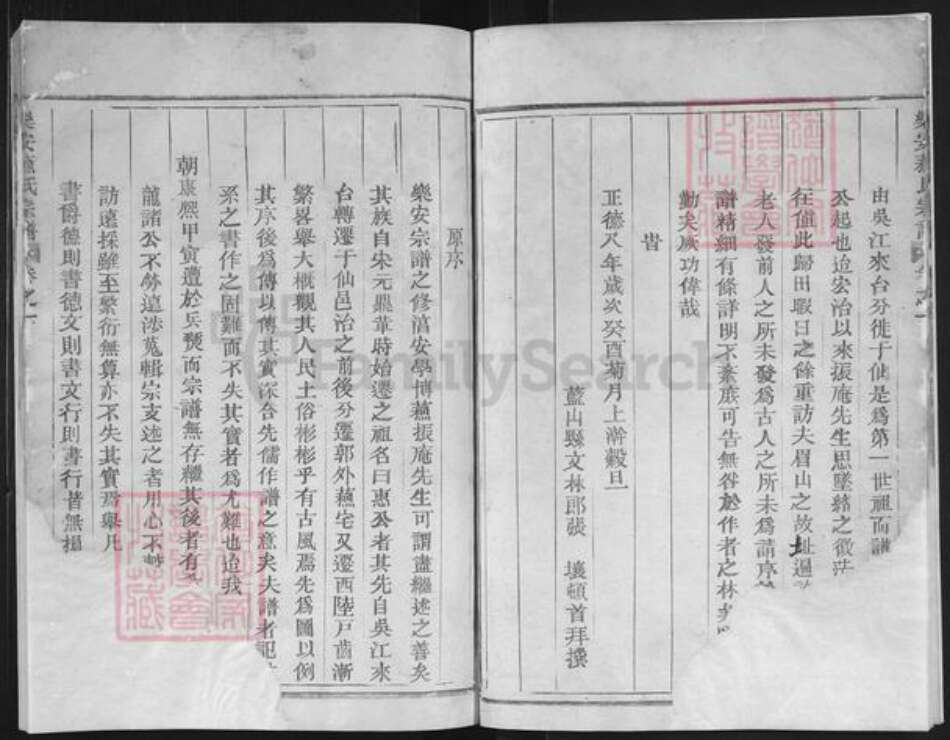 由吳江來台分徙于仙是爲第一世祖而譜
公起也迨安治以來振庵先生思墜緒之微茫
在値此歸田暇日之餘重訪夫眉山之故址遍
老人發前人之所未發爲古人之所未爲請序
譜精細有條詳明不紊庶可告無咎於作者之林
勤矣族功偉哉
旹
正德八年歲次癸酉菊月上澣穀旦
藍山縣文林郎張 壤頓首拜撰
原序
樂安宗譜之修淯安學博蔣振庵先生可謂盡繼述之善矣
其族自宋元鼎革時始遷之祖名曰惠公者其先自吳江來
台轉遷于仙邑治之前後分遷郭外蔣宅又遷西陸戸齒漸
繁畧舉大概觀其人民土俗彬彬乎有古風焉先爲圖以例
其序後爲傳以傳其實深合先儒作譜之意矣夫譜者記
系之書作之固難而不失其實者爲尤難也迨我
朝康熙甲寅遭於兵燹而宗譜無存繼其後者有
龍諸公不勞遠涉蒐輯宗支述之者用心不
訪遠採雖至繁衍無算亦不失其實焉舉凡
書爵德則書德文則書文行則書行皆無損
FamilySearch